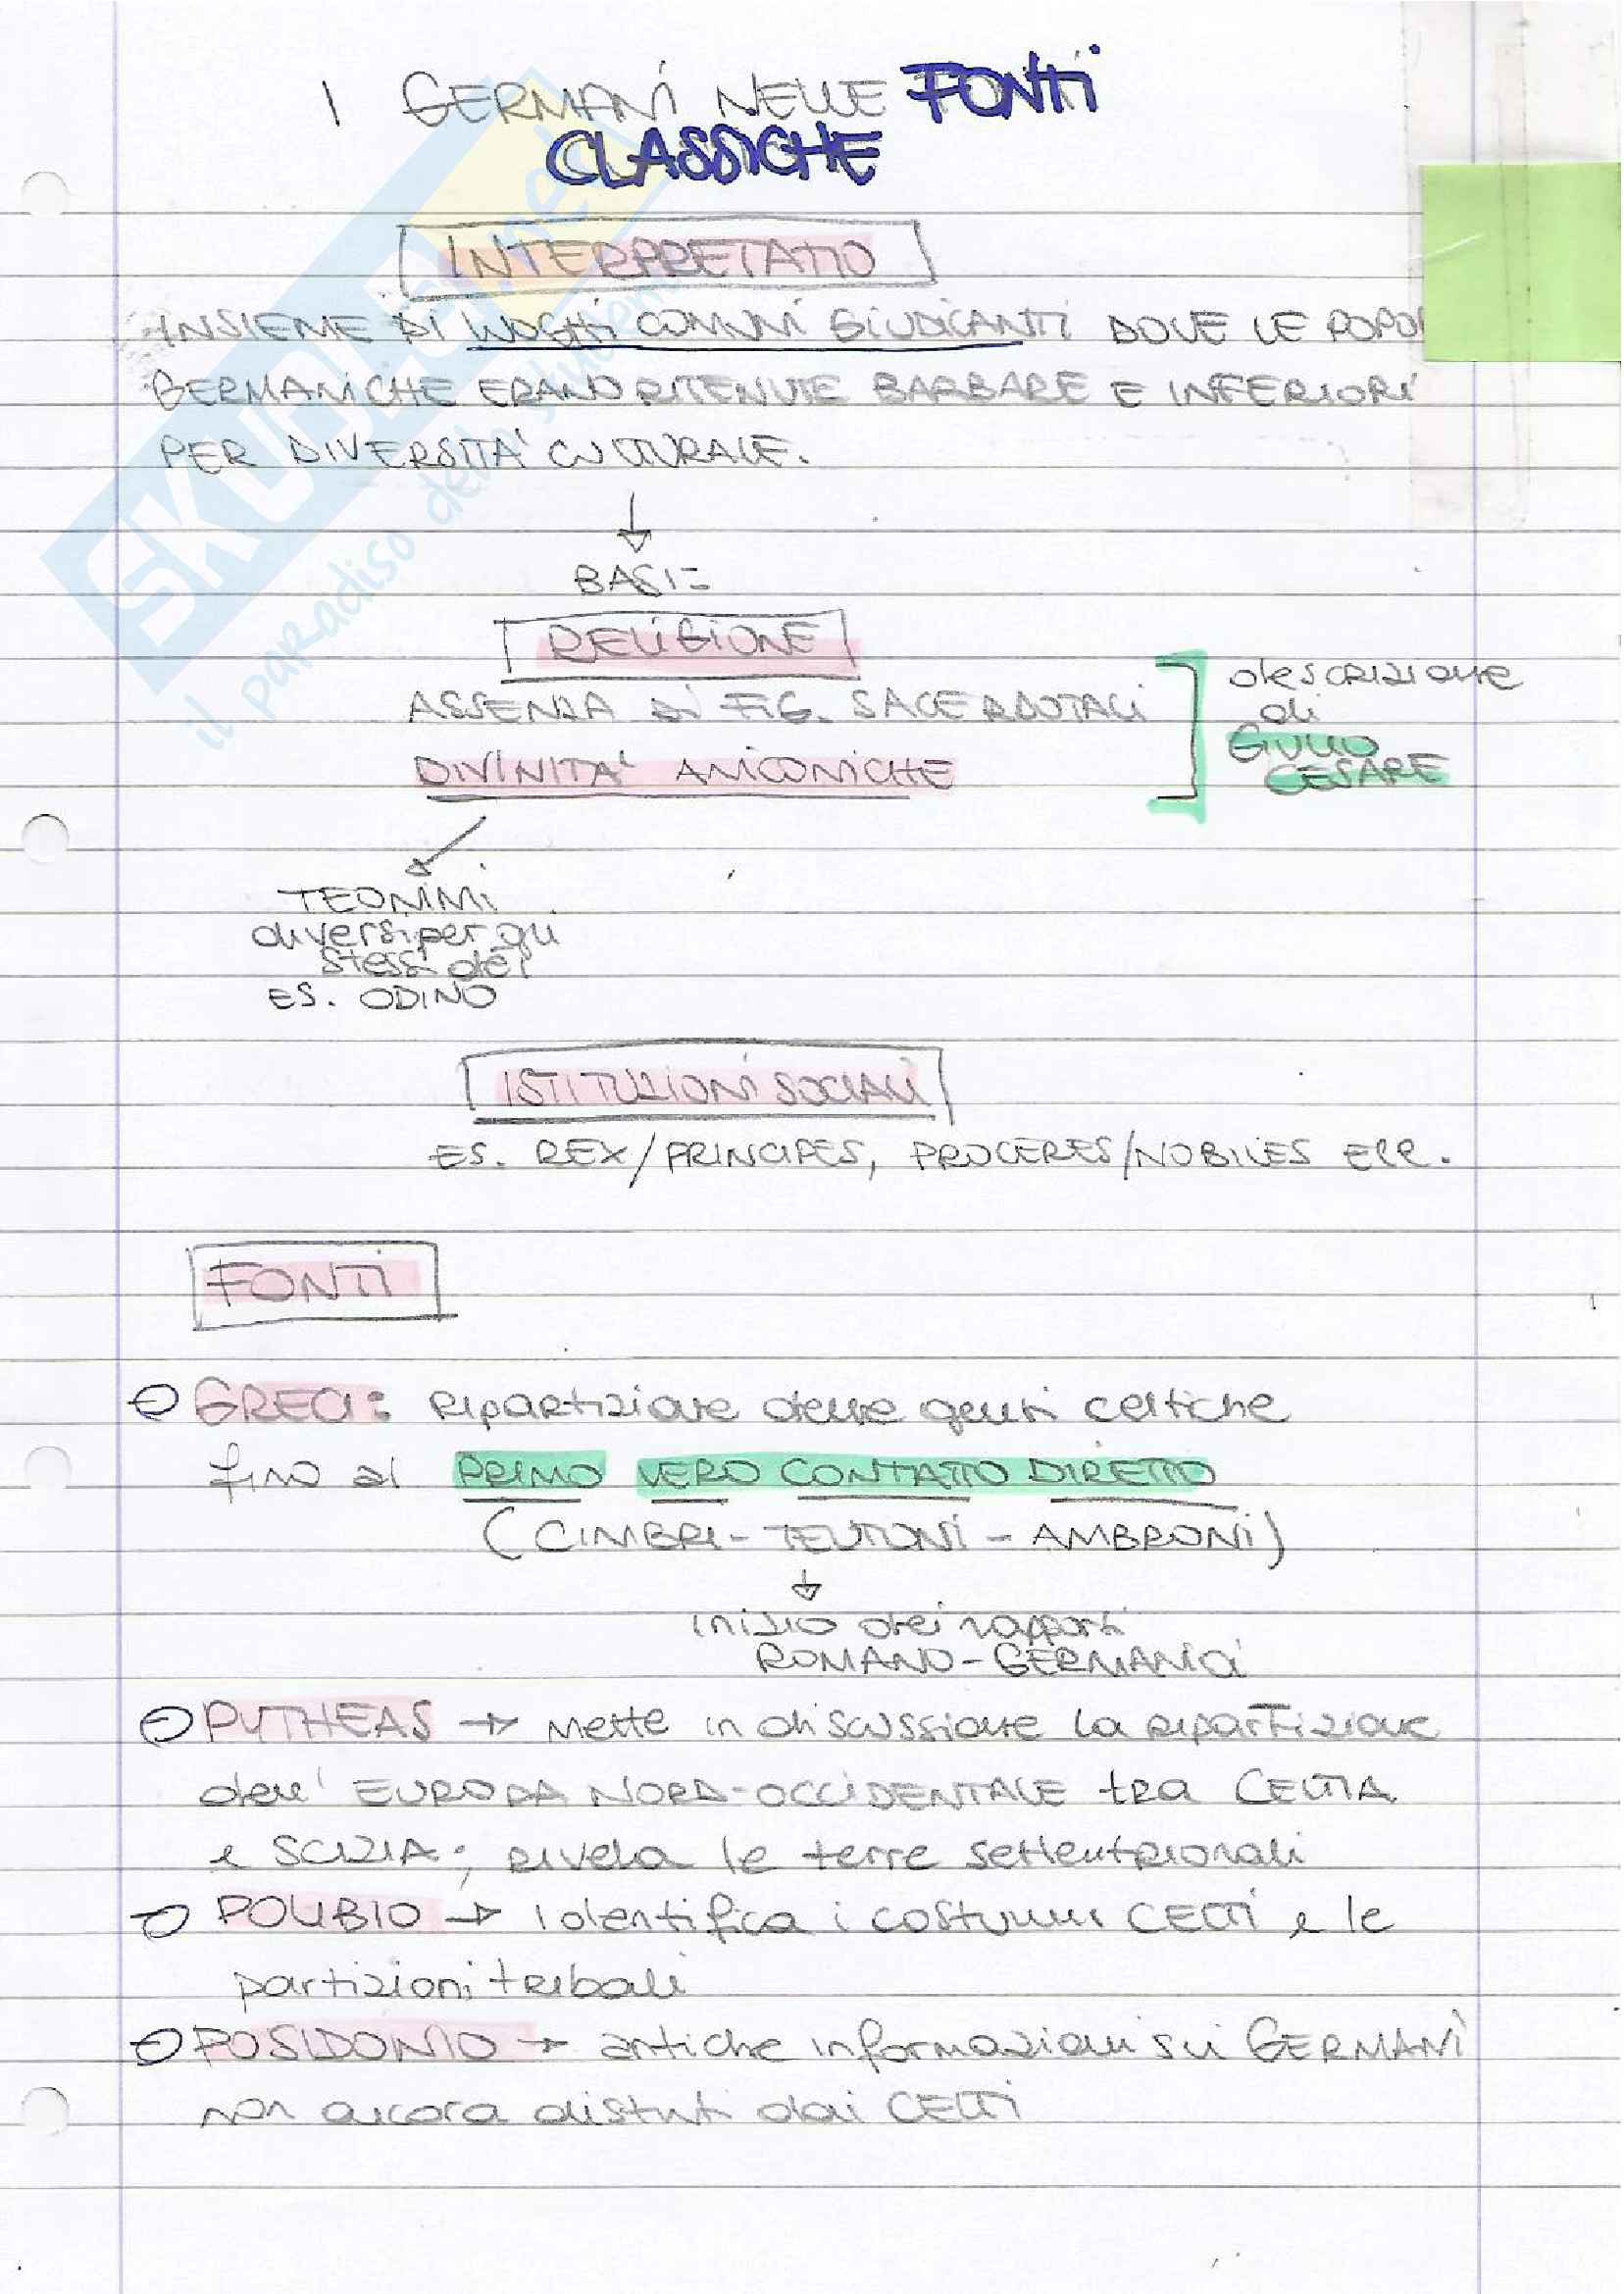 I GERMANI NELLE FONTI
CLASSICHE
INTERPRETATIO
INSIEME DI LUOGHI COMUNI GIUDICANTI DOVE LE POPOL
GERMANICHE ERANO RITENUTE BARBARE E INFERIORI
PER DIVERSITA' CULTURALE.
BASI:
RELIGIONE
ASSENZA DI FIG. SACERDOTALI
DIVINITA' ANICONICHE
descrizione
di
GIULIO
CESARE
TEONIMI
diversi per gli
stessi dei
ES. ODINO
ISTITUZIONI SOCIALI
ES. REX/PRINCIPES, PROCERES/NOBILES ECC.
FONTI
GRECI: ripartizione delle genti celtiche
fino al PRIMO VERO CONTATTO DIRETTO
(CIMBRI - TEUTONI - AMBRONI)
inizio dei rapporti
ROMANO-GERMANICI
PYTHEAS → mette in discussione la ripartizione
dell' EUROPA NORD-OCCIDENTALE tra CELTIA
e SCIZIA; rivela le terre settentrionali
POLIBIO → identifica i costumi CELTI e le
partizioni tribali
POSIDONIO → antiche informazioni sui GERMANI
non ancora distinti dai CELTI
SKUOLA.net
il paradiso dello studente